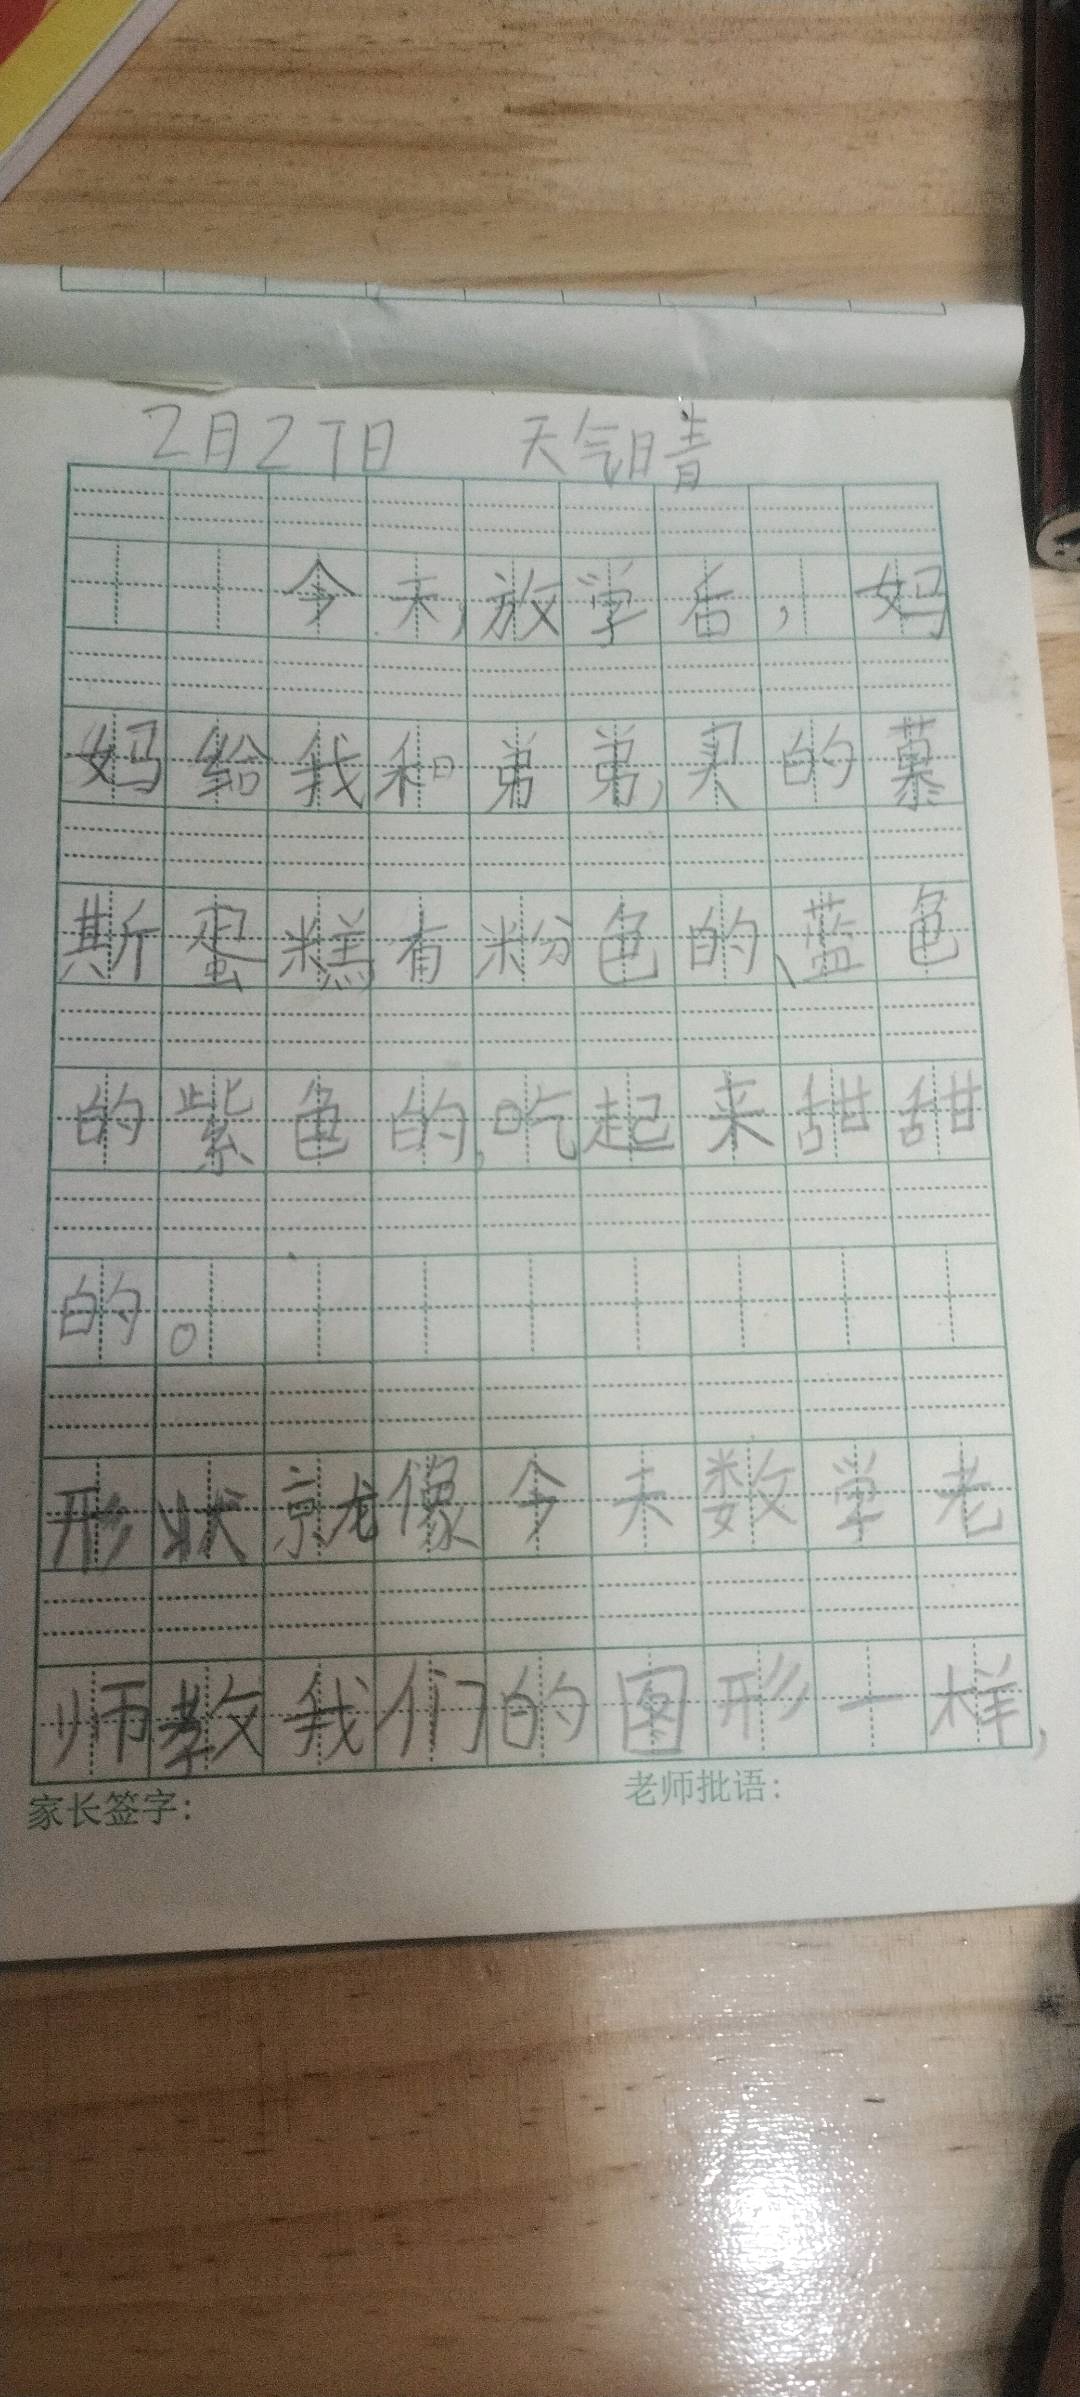 2月27日 天气晴
今天,放学后,妈
妈给我和弟弟,买的慕
斯蛋糕有粉色的、蓝色
的紫色的,吃起来甜甜
的。
形状就像今天数学老
师教我们的图形一样,
家长签字: 老师批语: